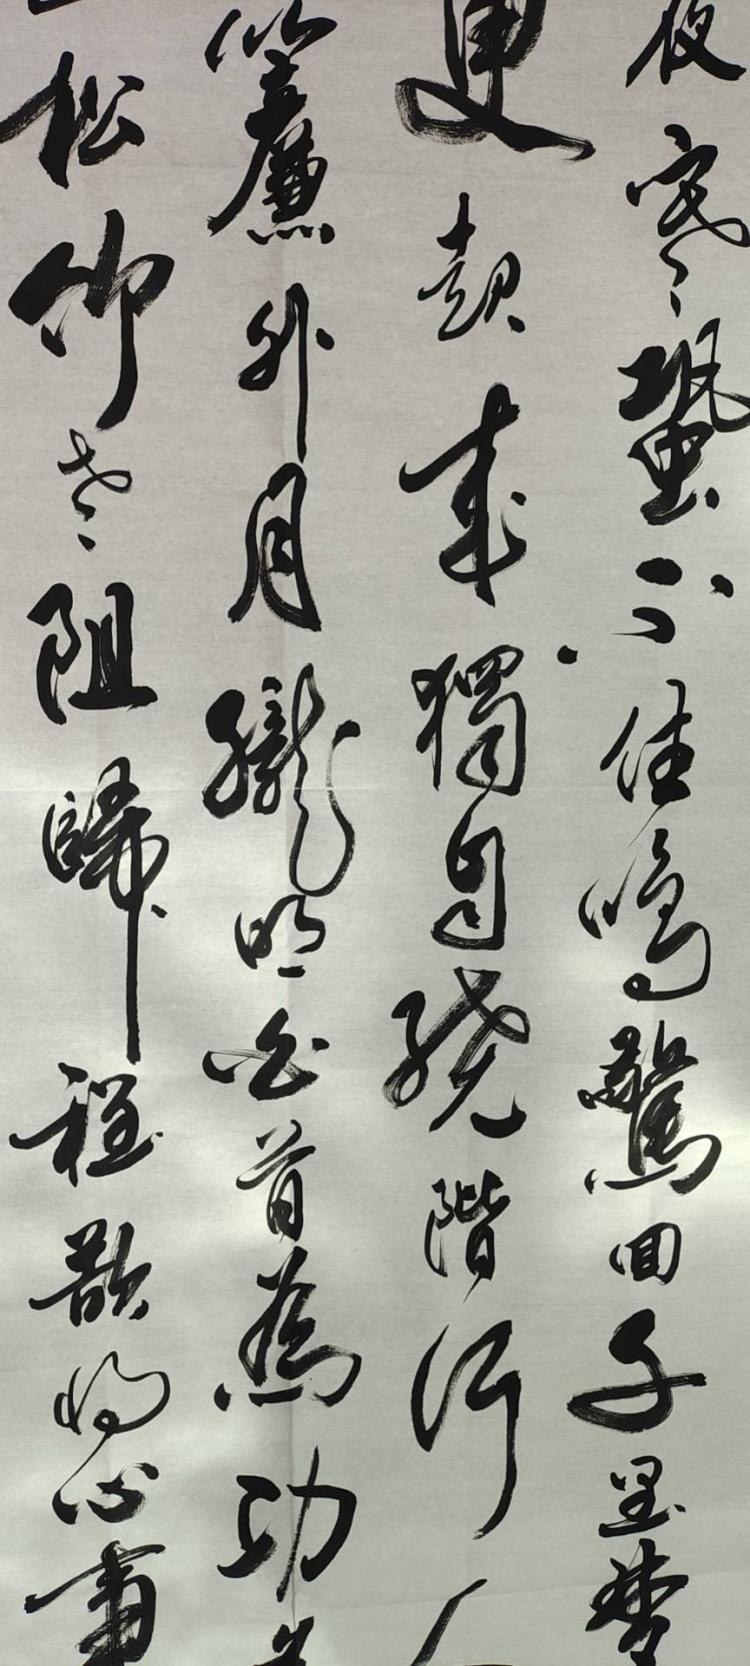 夜寒蛩不住鳴驚回千里夢
更起來獨自繞階行人
簾外月朧明白首為功
松竹老阻歸程欲將心事